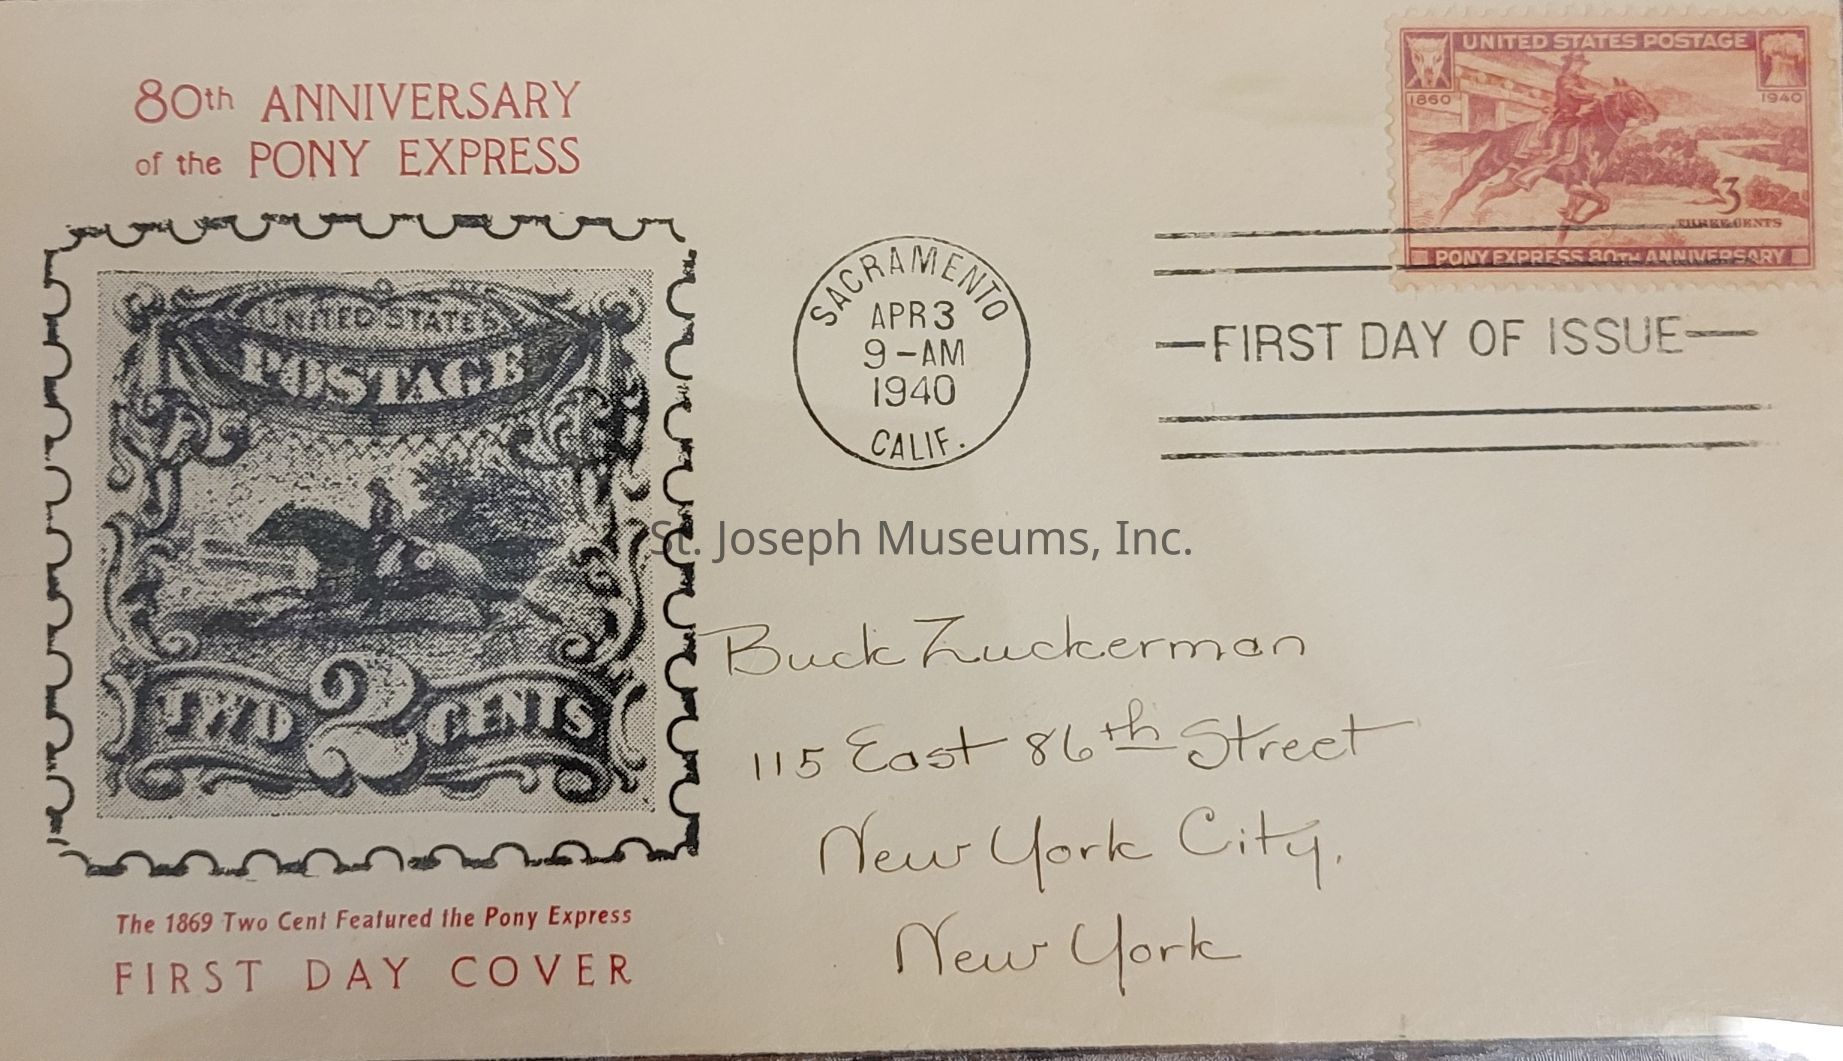 80th ANNIVERSARY
of the PONY EXPRESS
UNITED STATES
POSTAGE
TWO 2 CENTS
The 1869 Two Cent Featured the Pony Express
FIRST DAY COVER
SACRAMENTO
APR 3
9-AM
1940
CALIF.
UNITED STATES POSTAGE
1860 1940
3
THREE CENTS
PONY EXPRESS 80TH ANNIVERSARY
FIRST DAY OF ISSUE
St. Joseph Museums, Inc.
Buck Zuckerman
115 East 86th Street
New York City,
New York